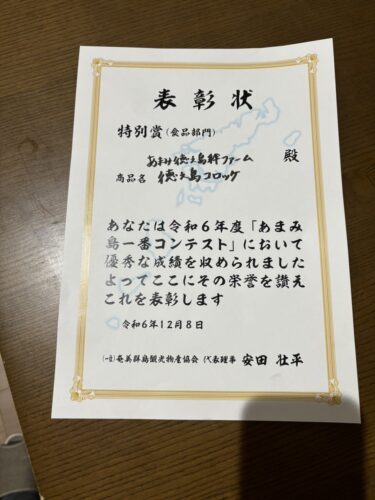 表彰状
特別賞(食品部門)
あまみ徳之島絆ファーム 殿
商品名 徳之島コロッケ
あなたは令和6年度「あまみ
島一番コンテスト」において
優秀な成績を収められました
よってここにその栄誉を讃え
これを表彰します
令和6年12月8日
(一社)奄美群島観光物産協会 代表理事 安田 壮平